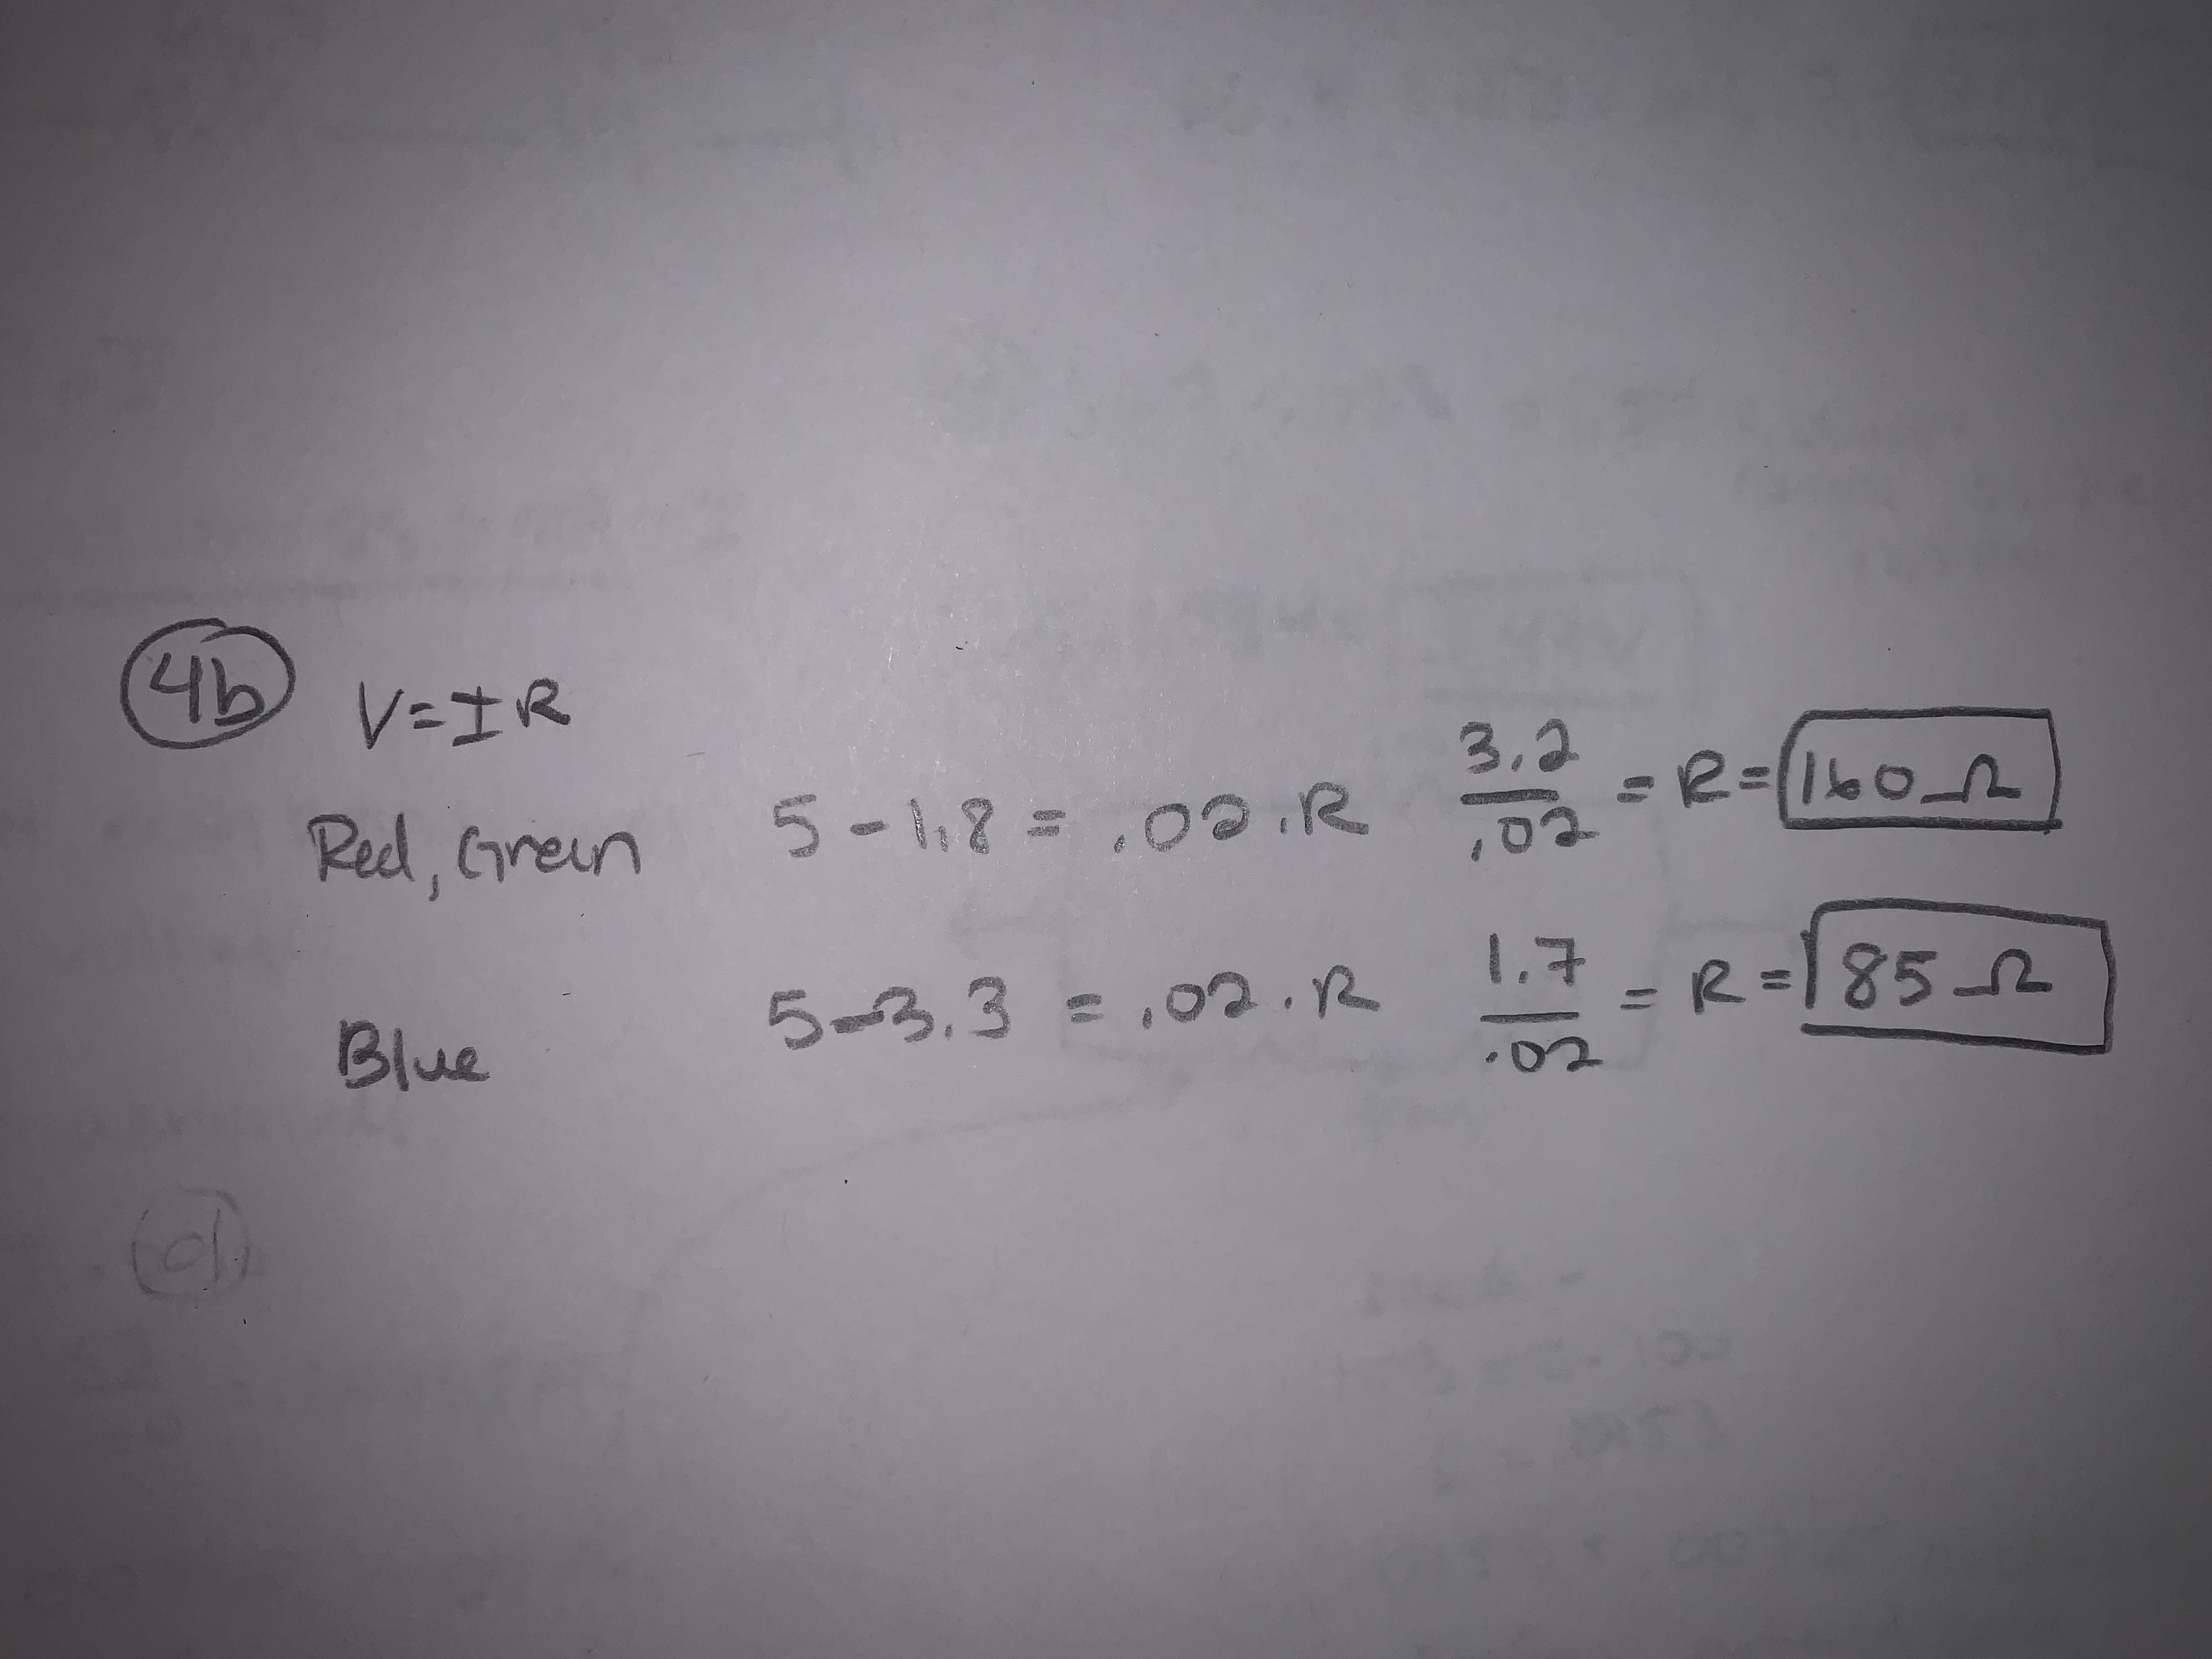 4b V=IR
Red, Green 5-1.8 = .02.R 3.2/.02 = R = 160 Ω
Blue 5-3.3 = .02.R 1.7/.02 = R = 85 Ω
d